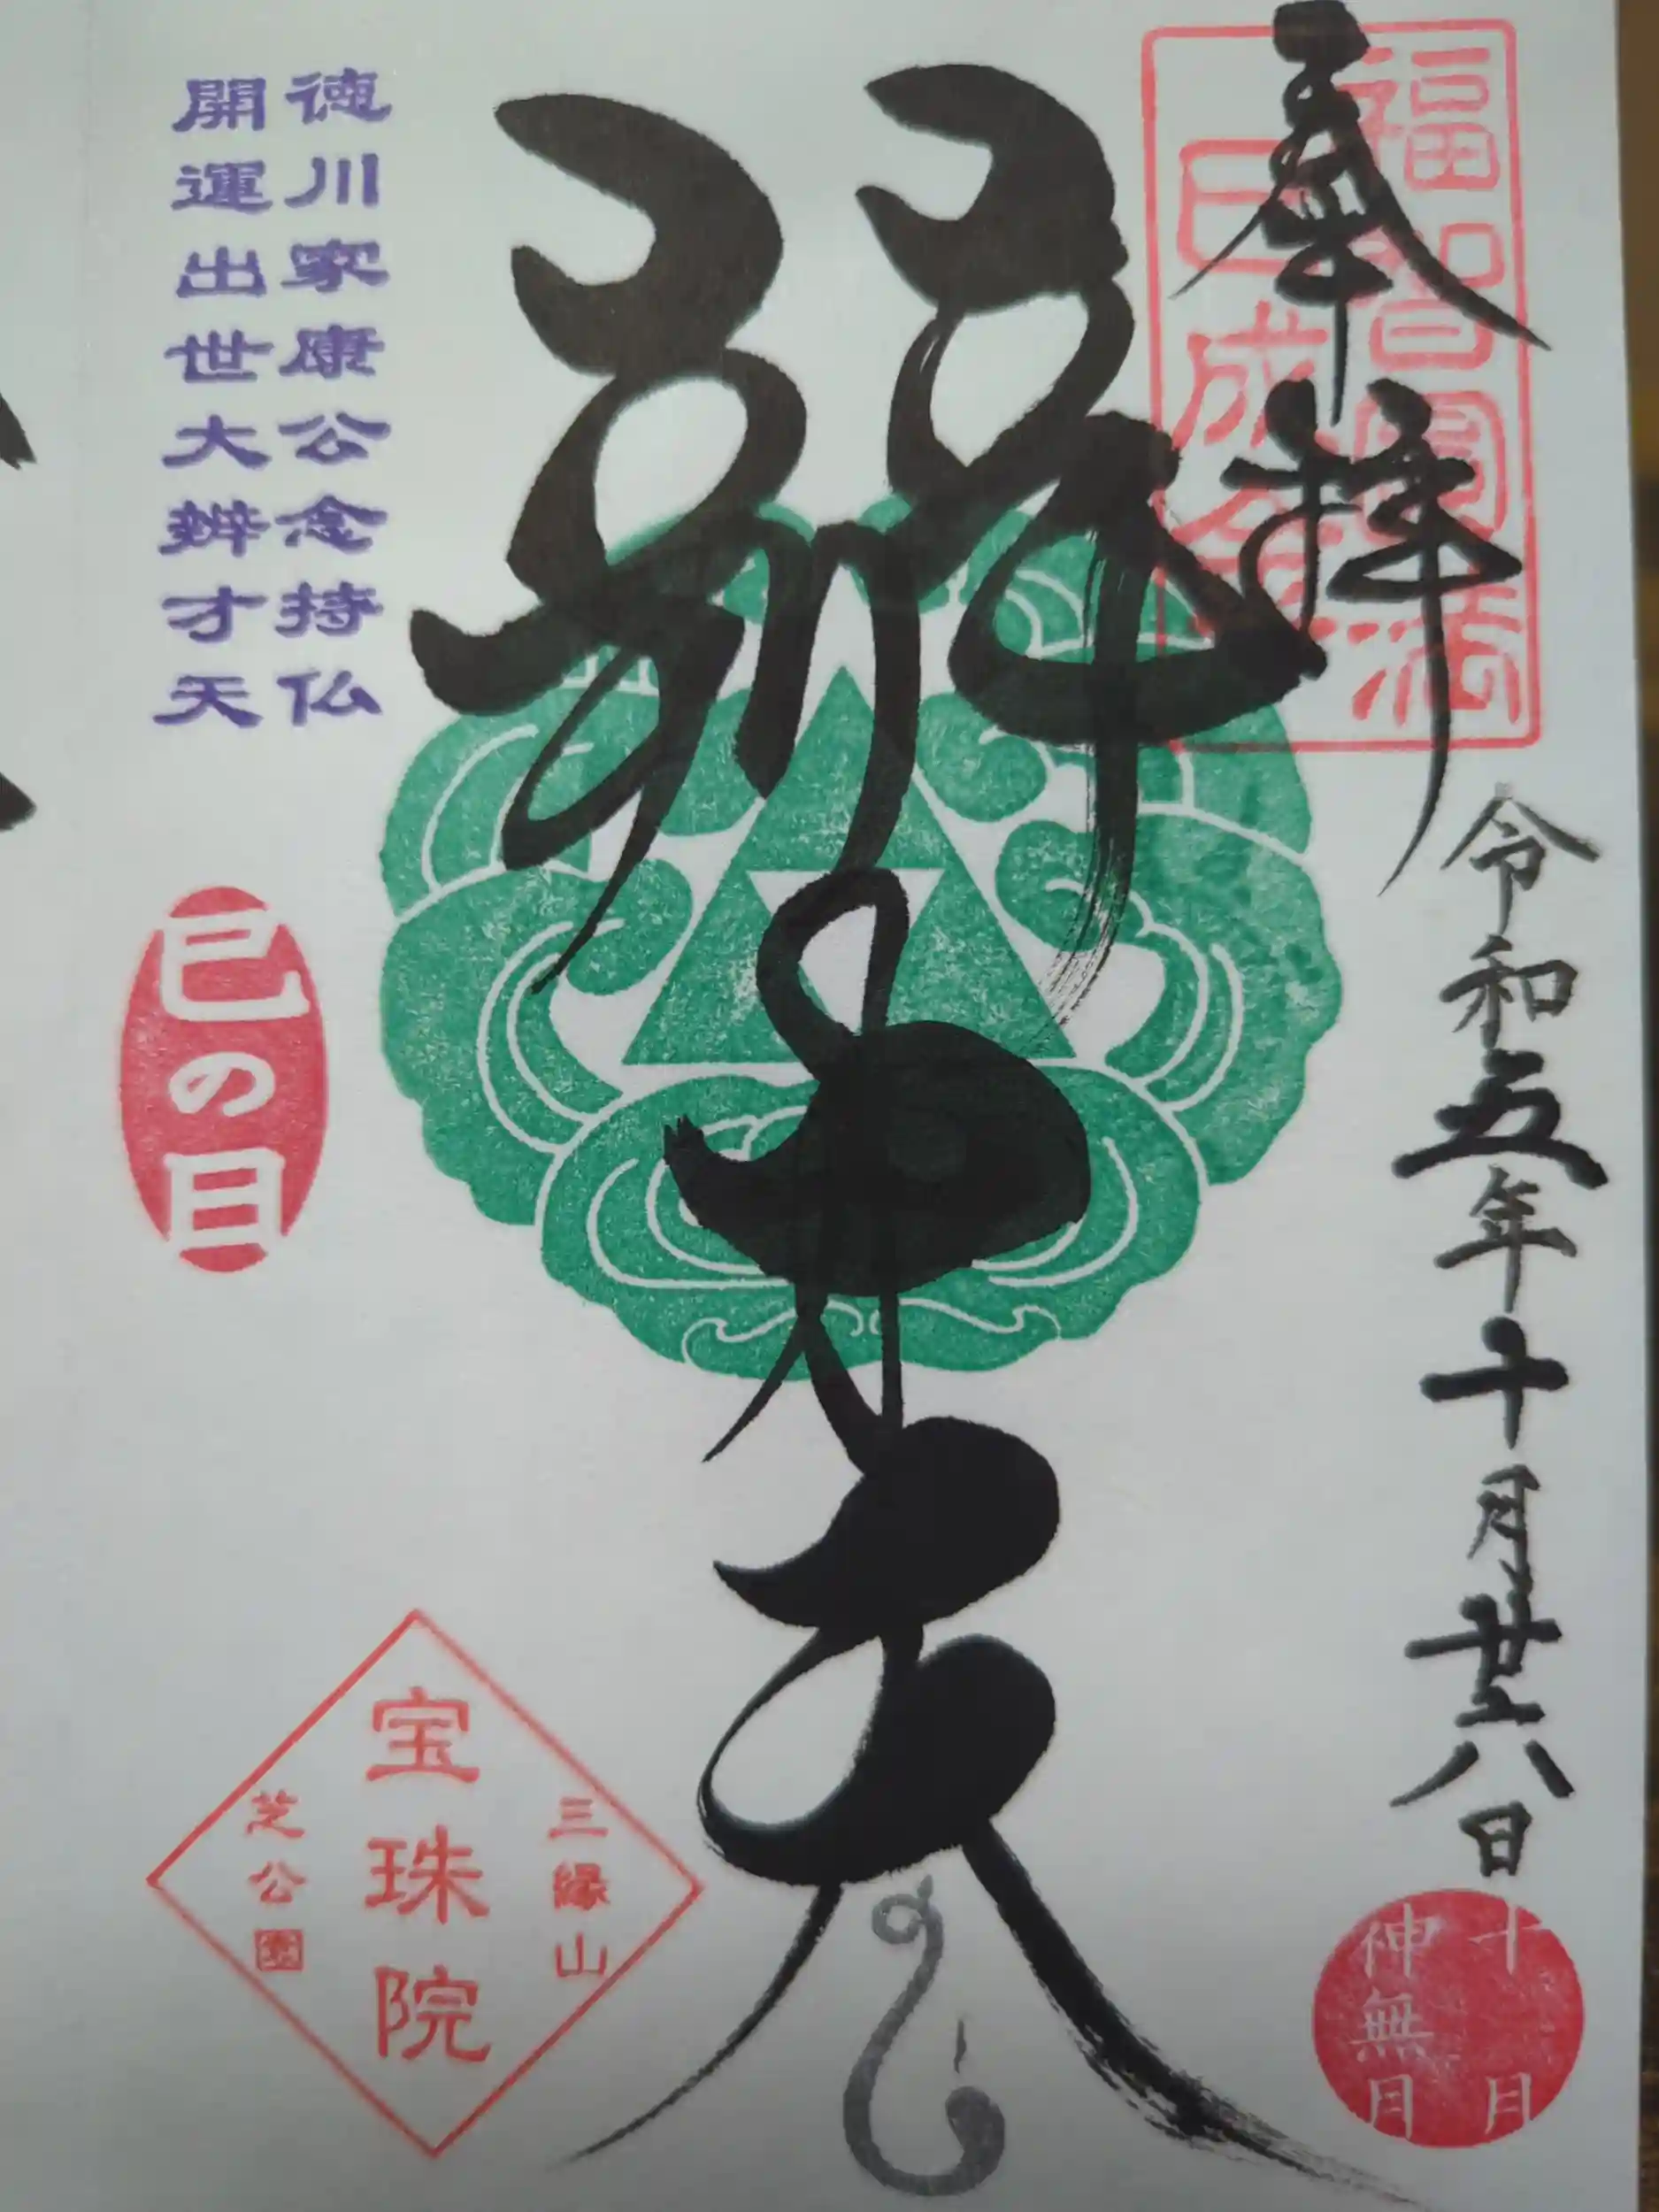 奉拝
福智円満
巳成金
令和五年十月廿八日
十月
神無月
辨才天
徳川家康公念持仏
開運出世大辨才天
巳の日
三縁山
宝珠院
芝公園